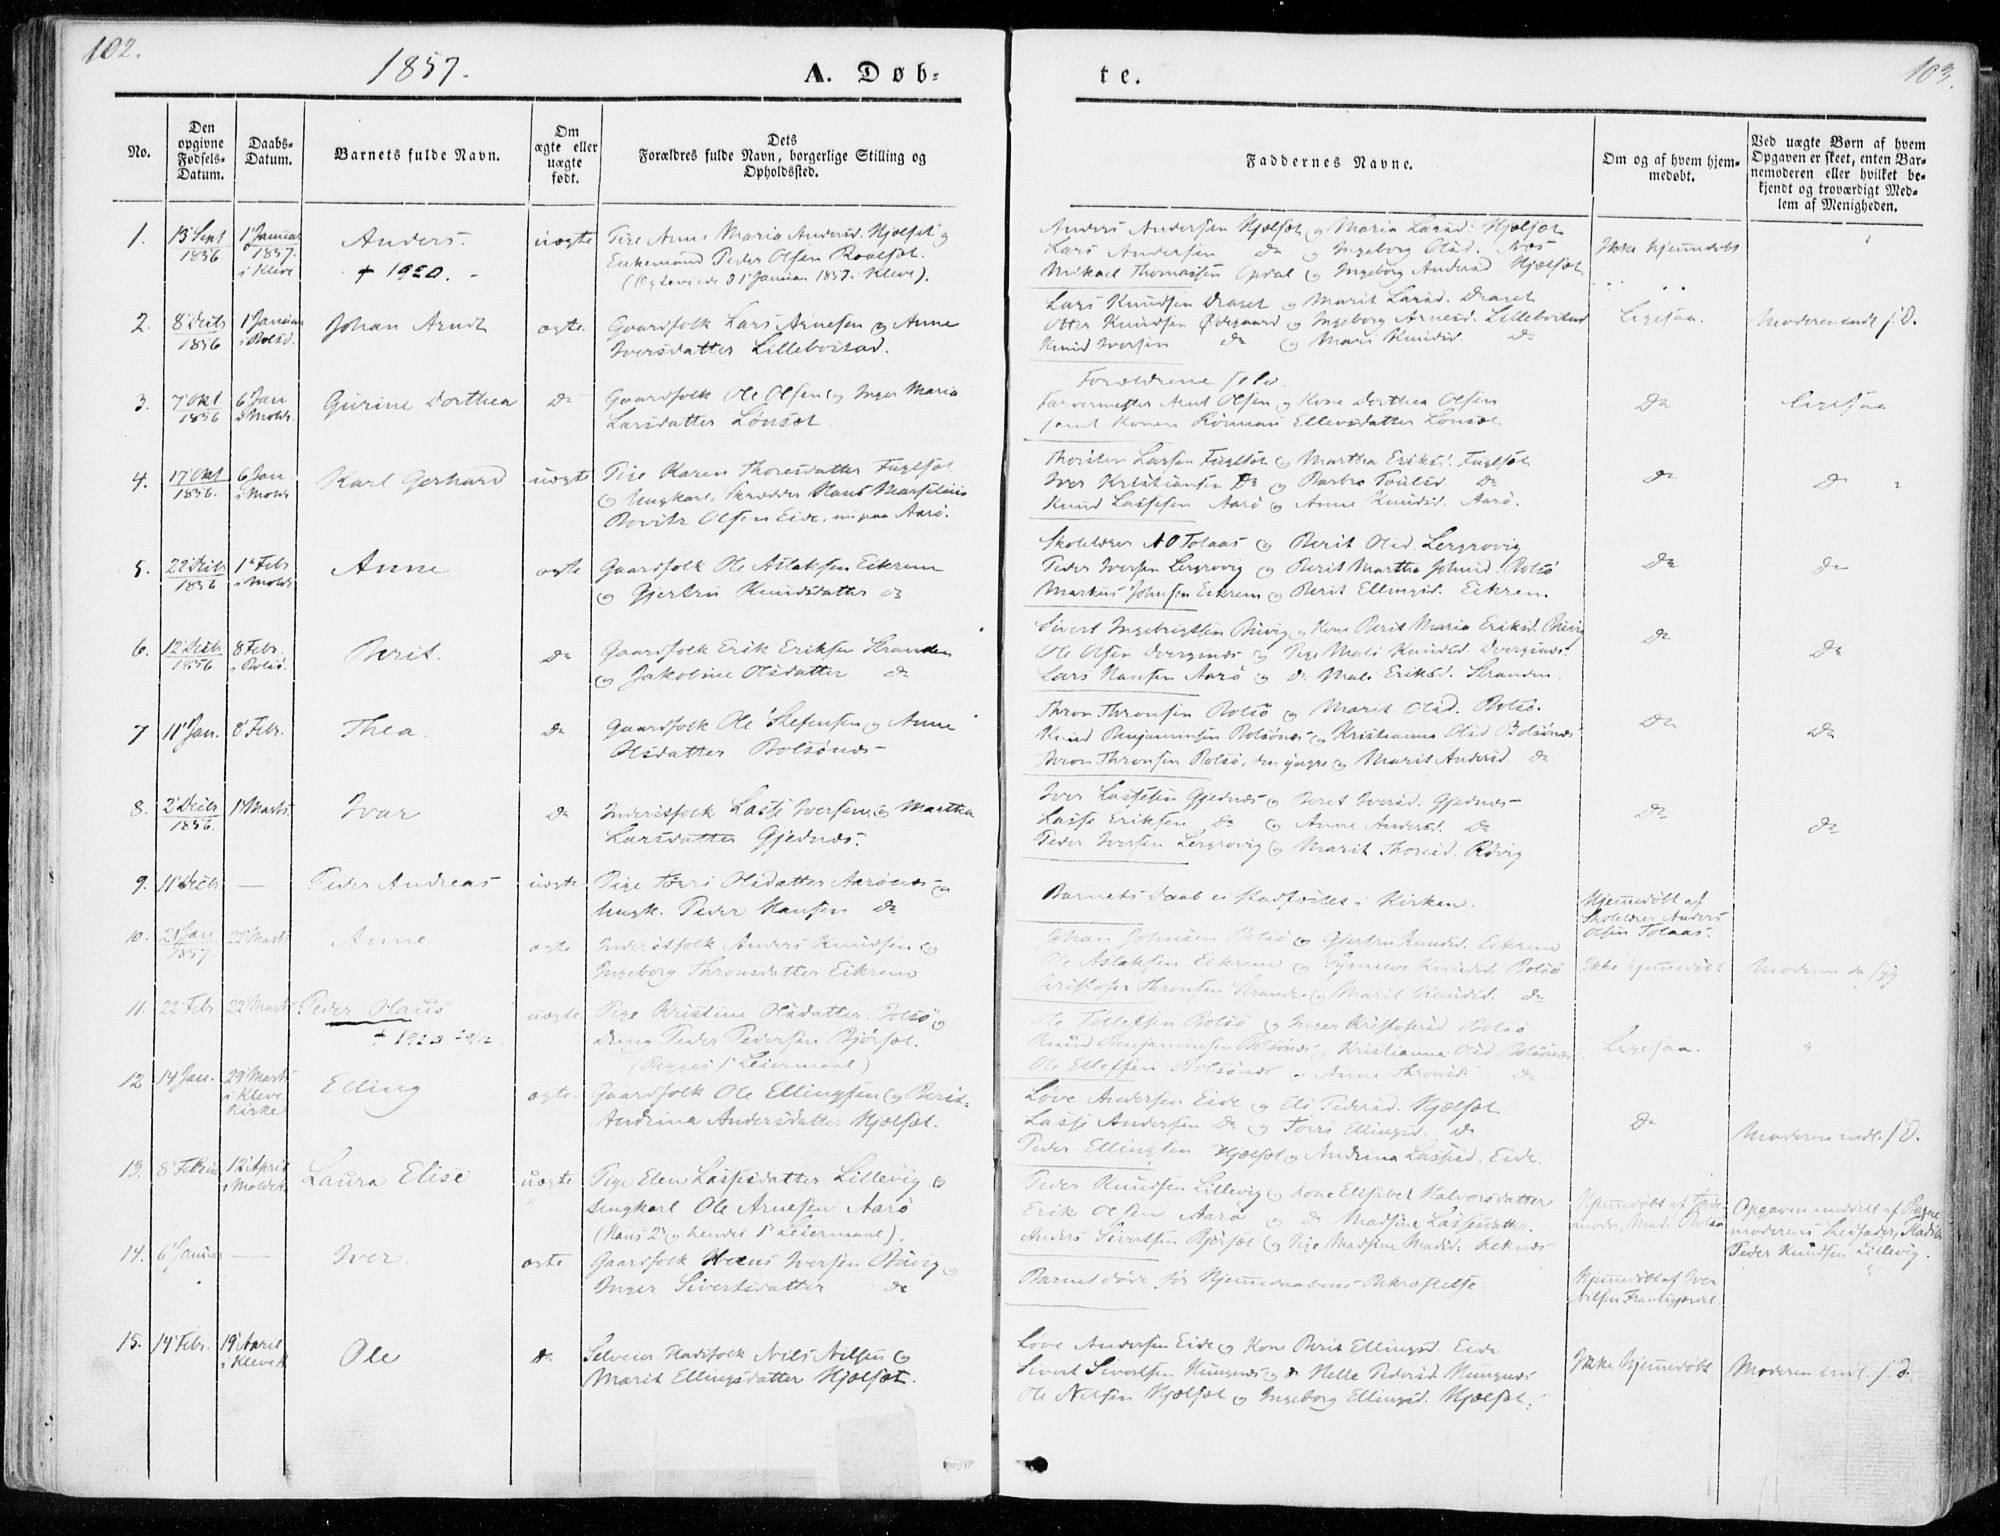 102.
1857.
A. Døb-
te.
103.
No.
Den opgivne Fødsels-Datum.
Daabs-Datum.
Barnets fulde Navn.
Om ægte eller uægte født.
Dets Forældres fulde Navn, borgerlige Stilling og Opholdssted.
Faddernes Navne.
Om og af hvem hjemmedøbt.
Ved uægte Børn af hvem Opgaven er skeet, enten Barnemoderen eller hvilket bekjendt og troværdigt Medlem af Menigheden.
1. 13 Sept 1856 1 Januar 1857 i Kleve
Anders.
† 1920.
uægte
Pige Anne Maria Andersd. Hjelset og
Enkemand Peder Olsen Roalset.
(Ægteviede d 1 Januar 1857 i Kleve).
Anders Andersen Hjelset og Maria Larsd. Hjelset
Lars Andersen do og Ingeborg Olsd. Næs
Mikael Thomassen Opdal og Ingeborg Andersd Hjelset
Ikke hjemmedøbt
2. 8 Decbr 1856 1 Januar i Bolsø.
Johan Arndt
ægte.
Gaardfolk Lars Arnesen og Anne
Iversdatter Lillebostad.
Lars Knudsen Draget og Marit Larsd. Draget
Otter Knudsen Ødegaard og Ingeborg Arnesd. Lillebostad
Knud Iversen do og Mari Knudsd. do
Ligesaa.
Moderen indl. s. D.
3. 7 Okt 1856 6 Jan i Molde.
Gurine Dorthea
Do
Gaardfolk Ole Olsen og Inger Maria
Larsdatter Lønset.
Forældrene selv.
Farvermester Arnt Olsen og Kone Dorthea Olsen
samt Konen Ellevsdatter Lønset.
Do
Ligesaa
4. 17 Okt 1856. 6 Jan. i Molde
Karl Gerhard
uægte
Pige Karen Thoresdatter Fuglset
og Ungkarl, Skrædder Hans Marselius
Olsen Eide, nu paa Aarø.
Thorsten Larsen Fuglset og Martha Eriksd. Fuglset
Iver Kristiansen Do og Barbro do
Knud Lassesen Aarø og Anne Knudsd. Aarø.
do
D
5. 22 Decbr 1856 1 Febr i Molde
Anne
ægte
Gaardfolk Ole Aslaksen Eikrem
og Gjertru Knudsdatter do
Skolelærer A O Tolaas og Berit Olsd. Lergrovig
Peder Iversen Lergrovig og Berit Martha Johnsd. Bolsø
Markus Johnsen Eikrem og Berit Ellingsd. Eikrem
Do
do
6. 12 Decbr 1856 8 Febr. i Bolsø.
Berit.
Do
Gaardfolk Erik Eriksen Stranden
og Jakobine Olsdatter do
Sivert Ingebrigtsen Buvig og Kone Berit Maria Eriksd. Buvig
Ole Olsen Dvergsnæs og Pige Mali Knudsd Dvergsnæs.
Lars Hansen Aarø og do Mali Eriksd. Stranden.
Do
Do
7 11 Jan. 8 Febr.
Thea.
Do
Gaardfolk Ole Stefensen og Anne
Olsdatter Bolsønæs
Thron Thronsen Bolsø og Marit Olsd. Bolsø.
Knud Benjaminsen Bolsønæs og Kristianna Olsd Bolsønæs
Thron Thronsen Bolsø, den yngre og Marit Andersd do
Do
Do
8. 2 Decbr 1856. 1 Marts.
Ivar
Do
Inderstfolk Lasse Iversen og Martha
Larsdatter Gjednæs.
Iver Lassesen Gjednæs og Berit Iversd. Gjednæs
Lasse Eriksen do og Anne Andersd. do
Peder Iversen Lergrovig og Marit Thoresd. Røvig
Do
Do
9. 11 Decbr —
Peder Andreas
uægte
Pige Torri Olsdatter Aarønæs og
Ungk. Peder Hansen do
Barnets Daab ei stadfæstet i Kirken.
Hjemmedøbt af
Skolelærer Anders
Olsen Tolaas.
10. 21 Jan 1857 22 Marts
Anne
ægte
Inderstfolk Anders Knudsen og
Ingeborg Thronsdatter Eikrem
Johan Johnsen Bolsø og Gjertru Knudsd. Eikrem
Ole Aslaksen Eikrem og Knudsd. Bolsø
Kristofer Thronsen Strande og Marit Knudsd. do
Ikke hjemmedøbt
Moderen
11. 22 Febr 22 Marts
Peder Olaus
† 1920
uægte
Pige Kristine Olsdatter Bolsø og
Dreng Peder Pedersen Bjørset.
(Begges 1ste Leiermaal)
Ole Tollefsen Bolsø og Inger Kristofersd. Bolsø
Knud Benjaminsen Bolsønæs og Kristianna Olsd. Bolsønæs
Ole Ellefsen Bolsønæs og Anne Thronsd. do
Ligesaa.
"
12 14 Jan. 29 Marts i Kleve Kirke
Elling
ægte.
Gaardfolk Ole Ellingsen og Berit
Andrina Andersdatter Hjelset.
Løve Andersen Eide og Eli Pedersd. Hjelset
Lasse Andersen Do og Torri Ellingsd. do
Peder Ellingsen Hjelset og Andrina Lassesd. Eide.
Do
Moderen indl. s. D.
13. 8 Febr 12 April i Molde K
Laura Elise
uægte
Pige Elen Lassesdatter Lillevig og
Ungkarl Ole Arnesen Aarø
(Hans 2det og hendes 1ste Leiermaal).
Peder Knudsen Lillevig og Kone Elisabet Halvorsdatter
Erik Olsen Aarø og do Madsine Lassesdatter.
Anders Sivertsen Bjørset og Pige Madsine Madsd. Reknæs
Hjemmedøbt af Jorde-
moder, Mad. Bolsø
Opgaven meddelt af Barne-
moderens Stedfader,
Peder Knudsen Lillevig.
14. 6 Januar —
Iver.
ægte
Gaardfolk Hans Iversen Buvig og
Inger Sivertsdatter do
Barnet døde før Hjemmedaabens Bekræftelse.
Hjemmedøbt af Iver
Nilsen
15. 14 Febr. 19 April i Kleve K
Ole
do
Selveier Nils Nilsen og
Marit Ellingsdatter Hjelset.
Løve Andersen Eide og Kone Berit Ellingsd. Eide
Sivert Sivertsen Hungnæs og do Helle Pedersd Hungnæs
Ole Nilsen Hjelset og Ingeborg Ellingsd. Hjelset.
Ikke hjemmedøbt
Moderen indl. s. D.